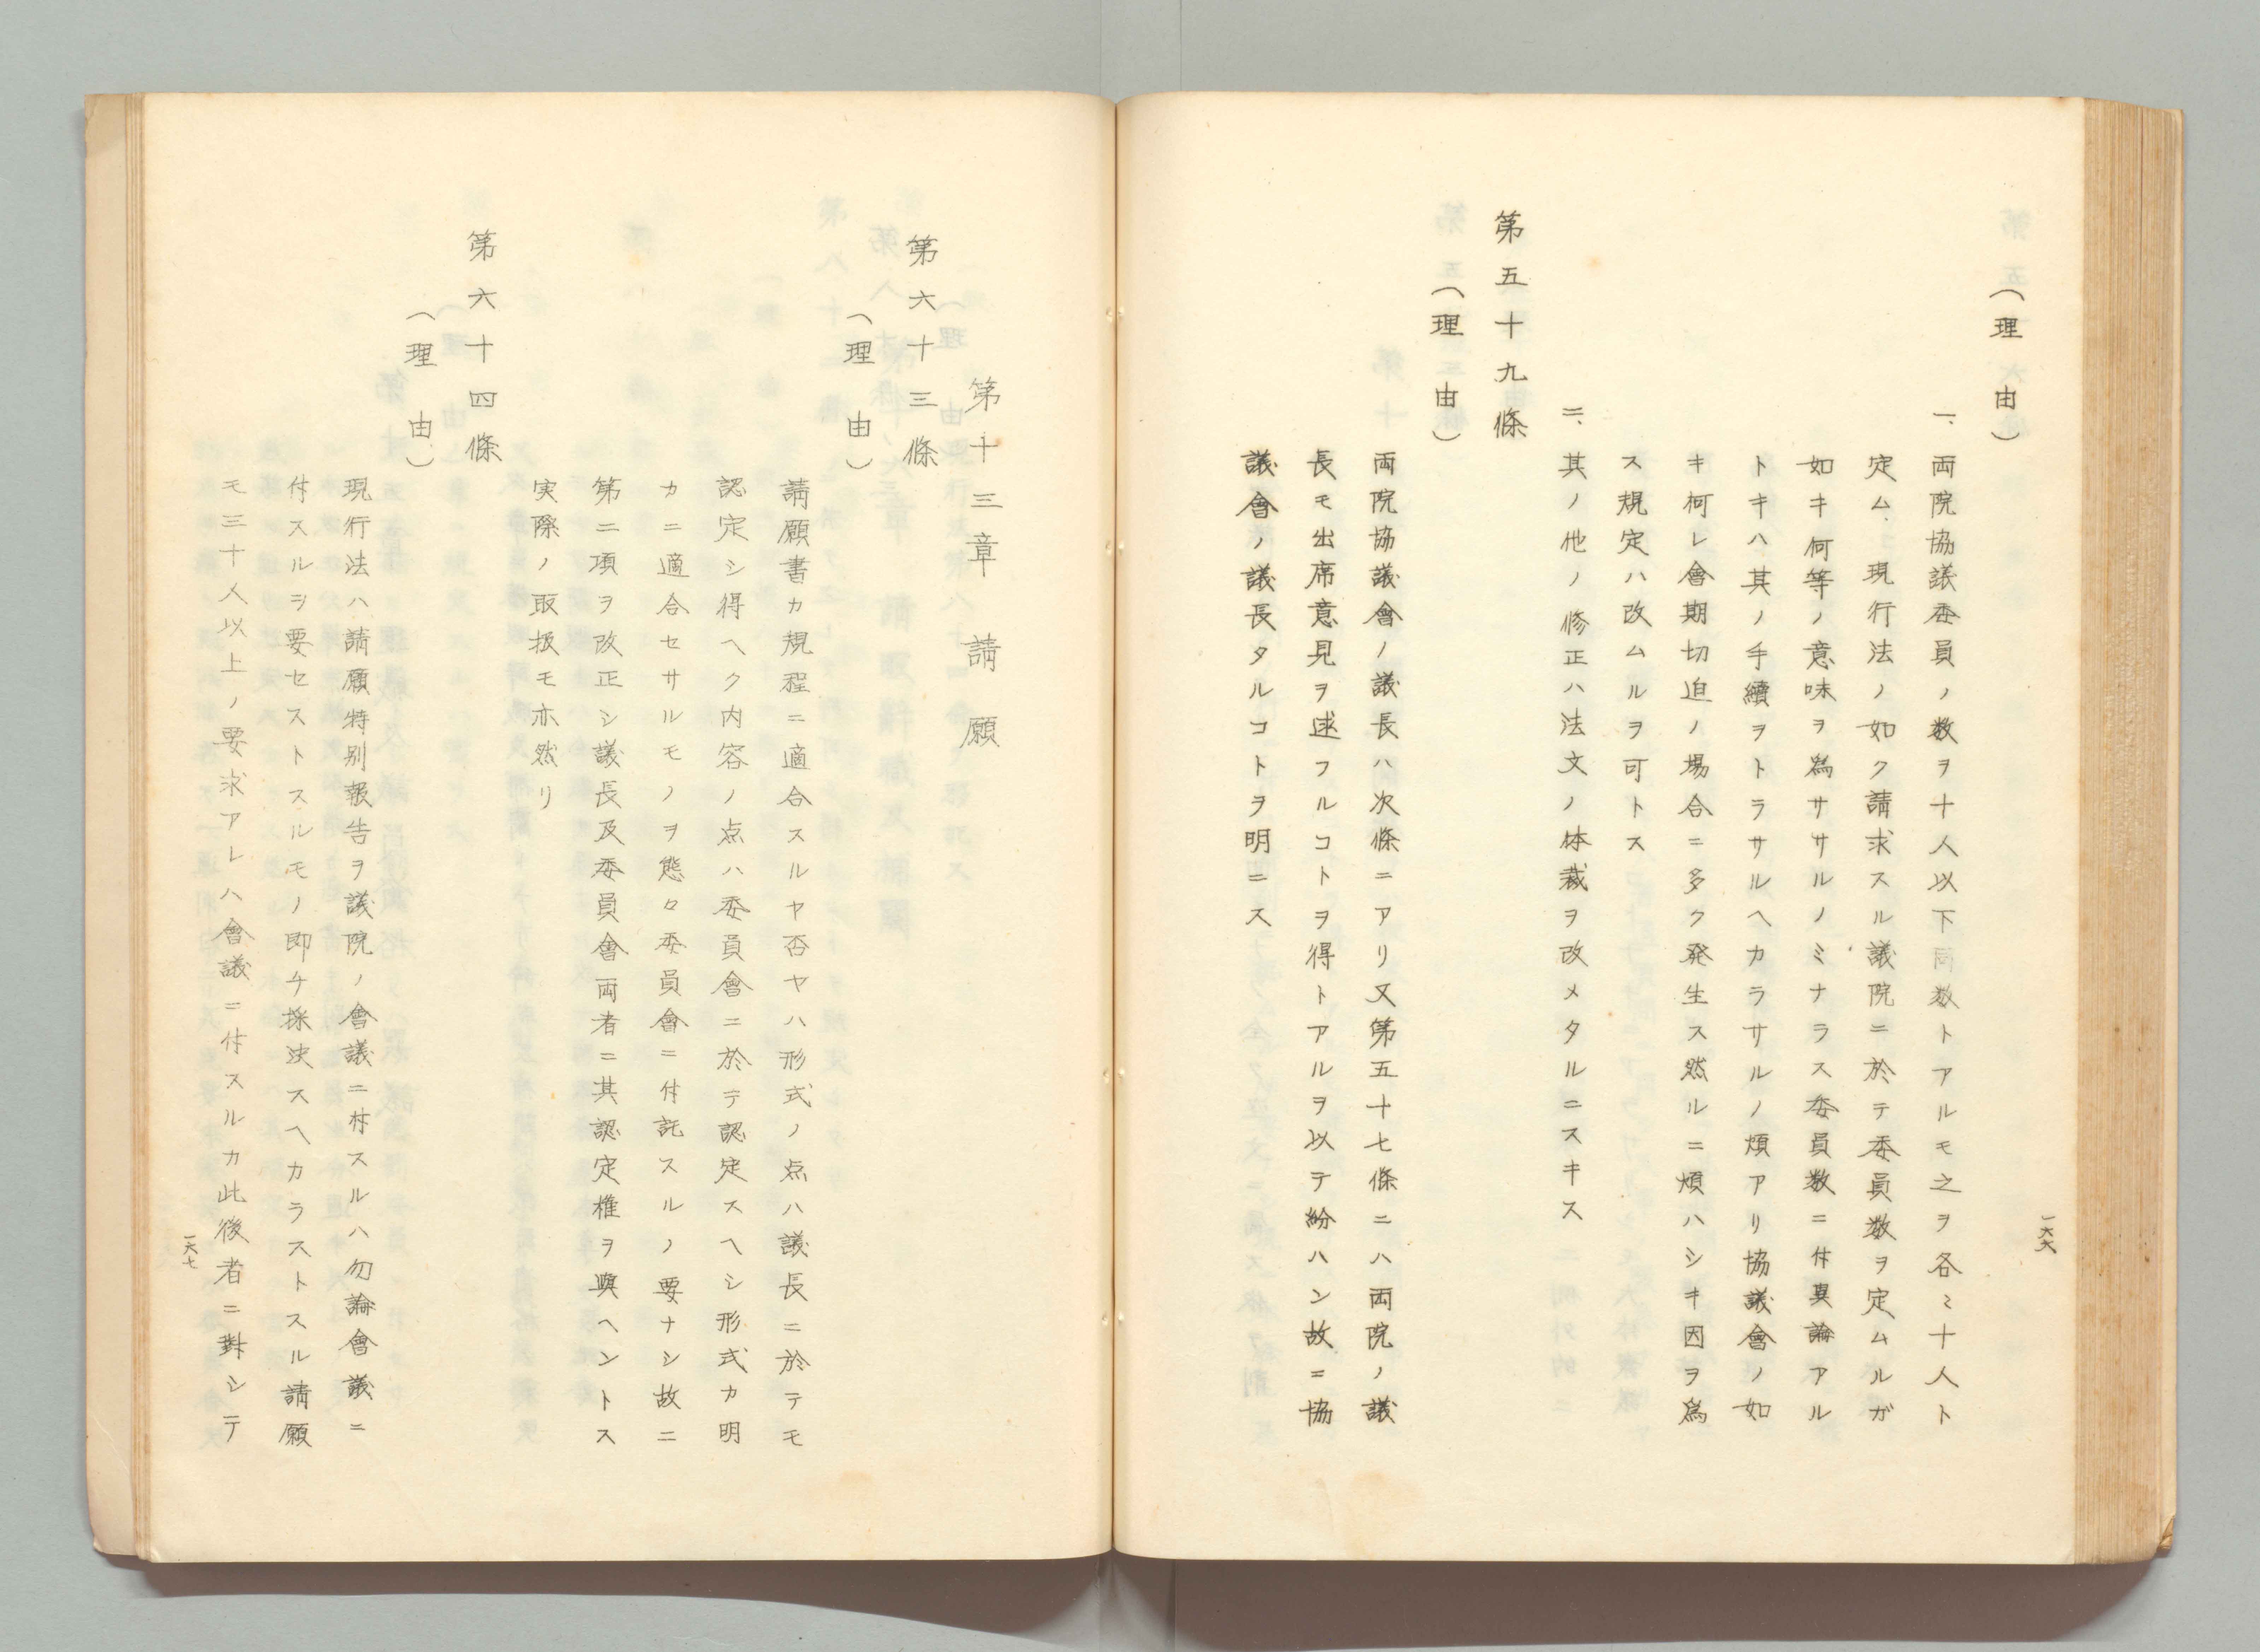 （理由）
一、両院協議委員ノ数ヲ十人以下同数トアルモ之ヲ各〻十人ト
定ム、現行法ノ如ク請求スル議院ニ於テ委員数ヲ定ムルガ
如キ何等ノ意味ヲ爲サザルノミナラス委員数ニ付異論アル
トキハ其ノ手續ヲトラサルヘカラサルノ煩アリ協議會ノ如
キ何レ會期切迫ノ場合ニ多ク発生ス然ルニ煩ハシキ因ヲ爲
ス規定ハ改ムルヲ可トス
二、其ノ他ノ修正ハ法文ノ体裁ヲ改メタルニスキス
第五十九條
（理由）
両院協議會ノ議長ハ次條ニアリ又第五十七條ニハ両院ノ議
長モ出席意見ヲ述フルコトヲ得トアルヲ以テ紛ハン故ニ協
議會ノ議長タルコトヲ明ニス
一六六
第十三章 請願
第六十三條
（理由）
請願書カ規程ニ適合スルヤ否ヤハ形式ノ点ハ議長ニ於テモ
認定シ得ヘク内容ノ点ハ委員會ニ於テ認定スヘシ形式カ明
カニ適合セサルモノヲ態々委員會ニ付託スルノ要ナシ故ニ
第二項ヲ改正シ議長及委員會両者ニ其認定権ヲ與ヘントス
実際ノ取扱モ亦然リ
第六十四條
（理由）
現行法ハ請願特別報告ヲ議院ノ會議ニ付スルハ勿論會議ニ
付スルヲ要セストスルモノ即チ採決スヘカラストスル請願
モ三十人以上ノ要求アレハ會議ニ付スルカ此後者ニ對シテ
一六七